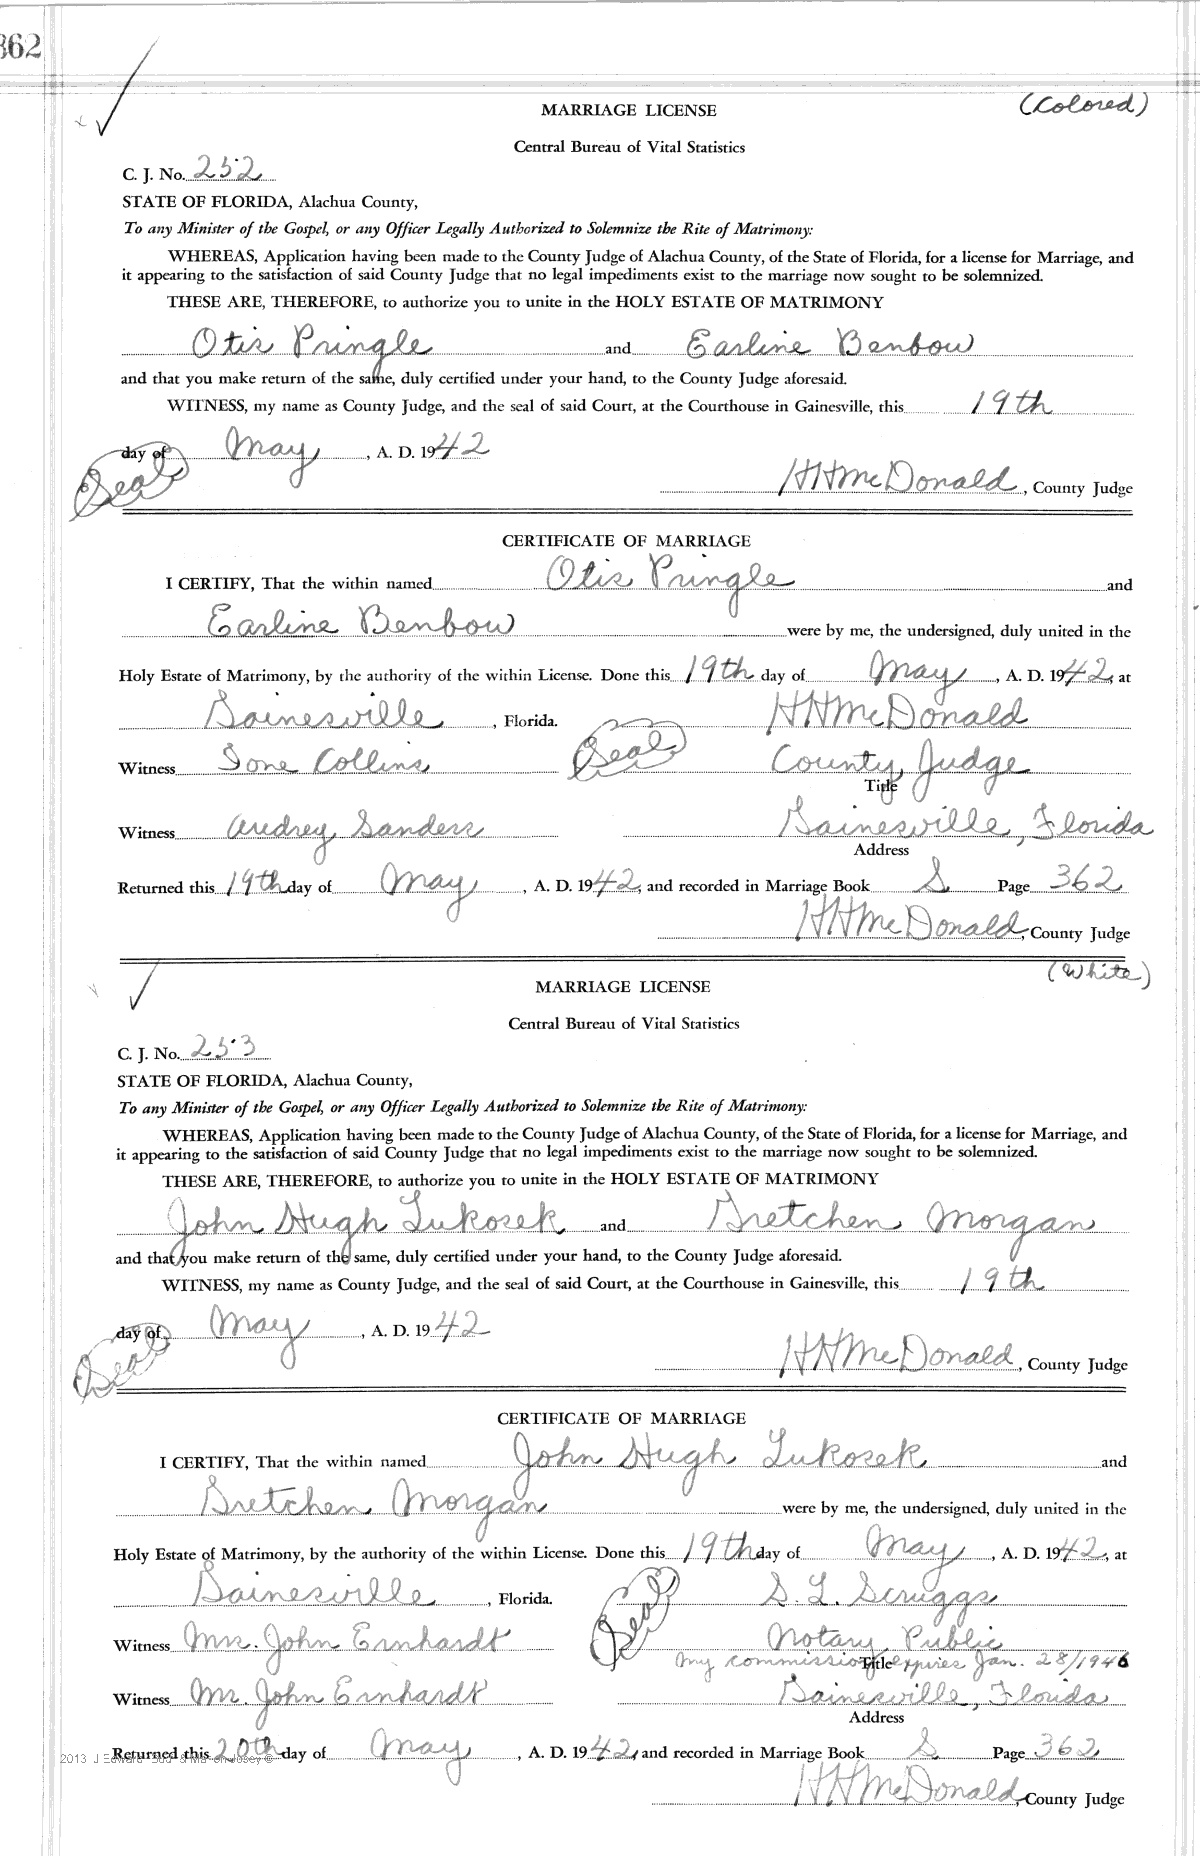 362
(Colored)
MARRIAGE LICENSE
Central Bureau of Vital Statistics
C. J. No. 252
STATE OF FLORIDA, Alachua County,
To any Minister of the Gospel, or any Officer Legally Authorized to Solemnize the Rite of Matrimony:
WHEREAS, Application having been made to the County Judge of Alachua County, of the State of Florida, for a license for Marriage, and
it appearing to the satisfaction of said County Judge that no legal impediments exist to the marriage now sought to be solemnized.
THESE ARE, THEREFORE, to authorize you to unite in the HOLY ESTATE OF MATRIMONY
Otis Pringle and Earline Benbow
and that you make return of the same, duly certified under your hand, to the County Judge aforesaid.
WITNESS, my name as County Judge, and the seal of said Court, at the Courthouse in Gainesville, this 19th
day of May, A. D. 1942
(Seal) HHMcDonald, County Judge
CERTIFICATE OF MARRIAGE
I CERTIFY, That the within named Otis Pringle and
Earline Benbow were by me, the undersigned, duly united in the
Holy Estate of Matrimony, by the authority of the within License. Done this 19th day of May, A. D. 1942, at
Gainesville, Florida. (Seal) HHMcDonald
Witness Ione Collins County Judge
Title
Witness Audrey Sanders Gainesville, Florida
Address
Returned this 19th day of May, A. D. 1942, and recorded in Marriage Book S Page 362
HHMcDonald, County Judge
(White)
MARRIAGE LICENSE
Central Bureau of Vital Statistics
C. J. No. 253
STATE OF FLORIDA, Alachua County,
To any Minister of the Gospel, or any Officer Legally Authorized to Solemnize the Rite of Matrimony:
WHEREAS, Application having been made to the County Judge of Alachua County, of the State of Florida, for a license for Marriage, and
it appearing to the satisfaction of said County Judge that no legal impediments exist to the marriage now sought to be solemnized.
THESE ARE, THEREFORE, to authorize you to unite in the HOLY ESTATE OF MATRIMONY
John Hugh Lukosek and Gretchen Morgan
and that you make return of the same, duly certified under your hand, to the County Judge aforesaid.
WITNESS, my name as County Judge, and the seal of said Court, at the Courthouse in Gainesville, this 19th
day of May, A. D. 1942
(Seal) HHMcDonald, County Judge
CERTIFICATE OF MARRIAGE
I CERTIFY, That the within named John Hugh Lukosek and
Gretchen Morgan were by me, the undersigned, duly united in the
Holy Estate of Matrimony, by the authority of the within License. Done this 19th day of May, A. D. 1942, at
Gainesville, Florida. (Seal) S. L. Scruggs
Witness Mrs. John Ernhardt Notary Public
My commission expires Jan. 28/1946
Title
Witness Mr. John Ernhardt Gainesville, Florida
Address
Returned this 20th day of May, A. D. 1942, and recorded in Marriage Book S Page 362
2013 J Edward
HHMcDonald, County Judge